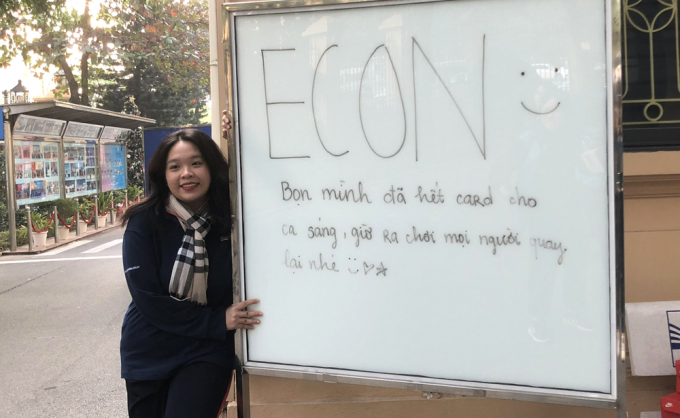 ECON
Bọn mình đã hết card cho
ca sáng, giờ ra chơi mọi người quay
lại nhé